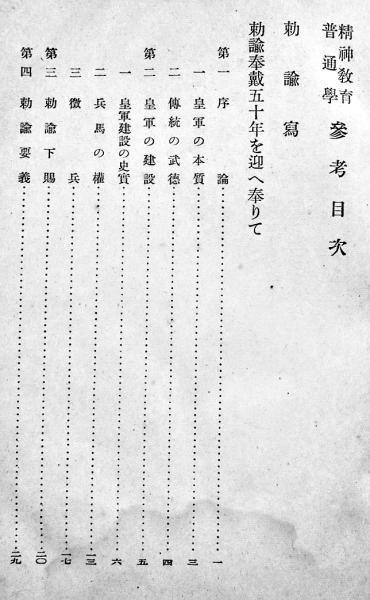 精神敎育
普通學 參考目次
勅諭寫
勅諭奉戴五十年を迎へ奉りて
第一 序論 一
一 皇軍の本質 三
二 傳統の武德 四
第二 皇軍の建設 五
一 皇軍建設の史實 六
二 兵馬の權 一三
三 徵兵 一七
第三 勅諭下賜 二〇
第四 勅諭要義 二九